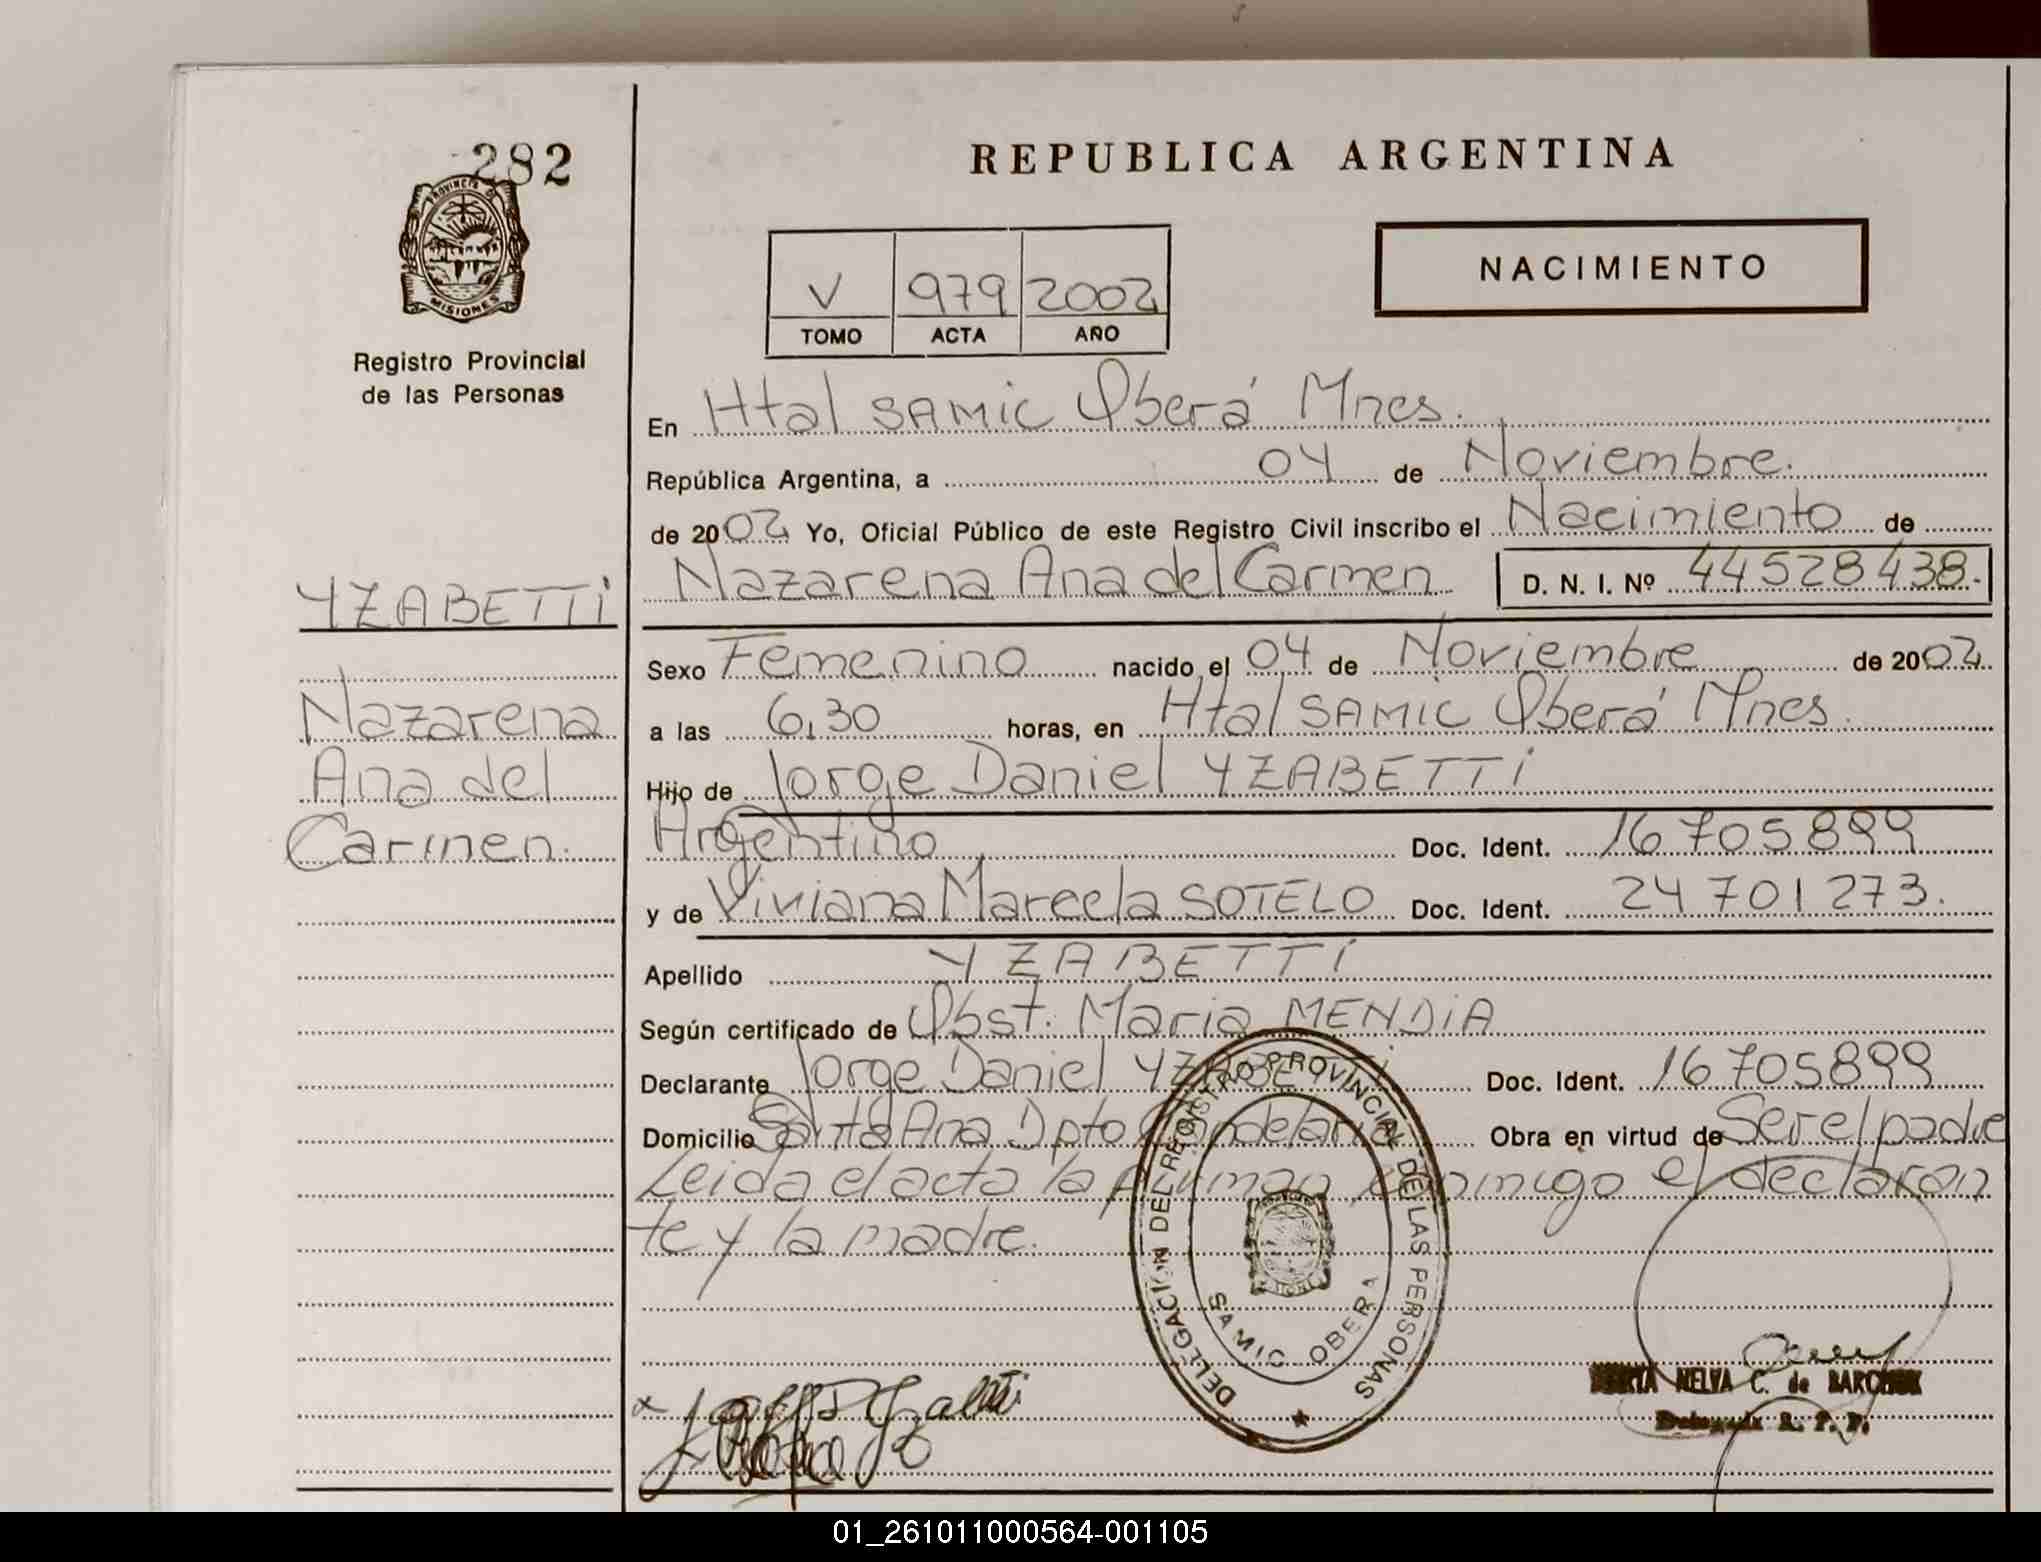 282
PROVINCIA DE
MISIONES
Registro Provincial
de las Personas
YZABETTi
Nazarena
Ana del
Carmen.
REPUBLICA ARGENTINA
V 979 2002
TOMO ACTA AÑO
NACIMIENTO
En Htal SAMiC Oberá Mnes.
República Argentina, a 04 de Noviembre.
de 2002 Yo, Oficial Público de este Registro Civil inscribo el Nacimiento de
Nazarena Ana del Carmen D. N. I. Nº 44528438.
Sexo Femenino nacido el 04 de Noviembre de 2002
a las 6,30 horas, en Htal SAMiC Oberá Mnes.
Hijo de Jorge Daniel YZABETTi
Argentino Doc. Ident. 16705899
y de Viviana Marcela SOTELO Doc. Ident. 24701273.
Apellido YZABETTi
Según certificado de Obst. Maria MENDiA
Declarante Jorge Daniel YZABETTi Doc. Ident. 16705899
Domicilio Santa Ana Dpto Candelaria Obra en virtud de Ser el padre
Leida el acta la firman conmigo el declaran
te y la madre.
DELEGACION DEL REGISTRO PROVINCIAL DE LAS PERSONAS
SAMIC OBERA
NELVA C. de
Delegada R. P. P.
01_261011000564-001105